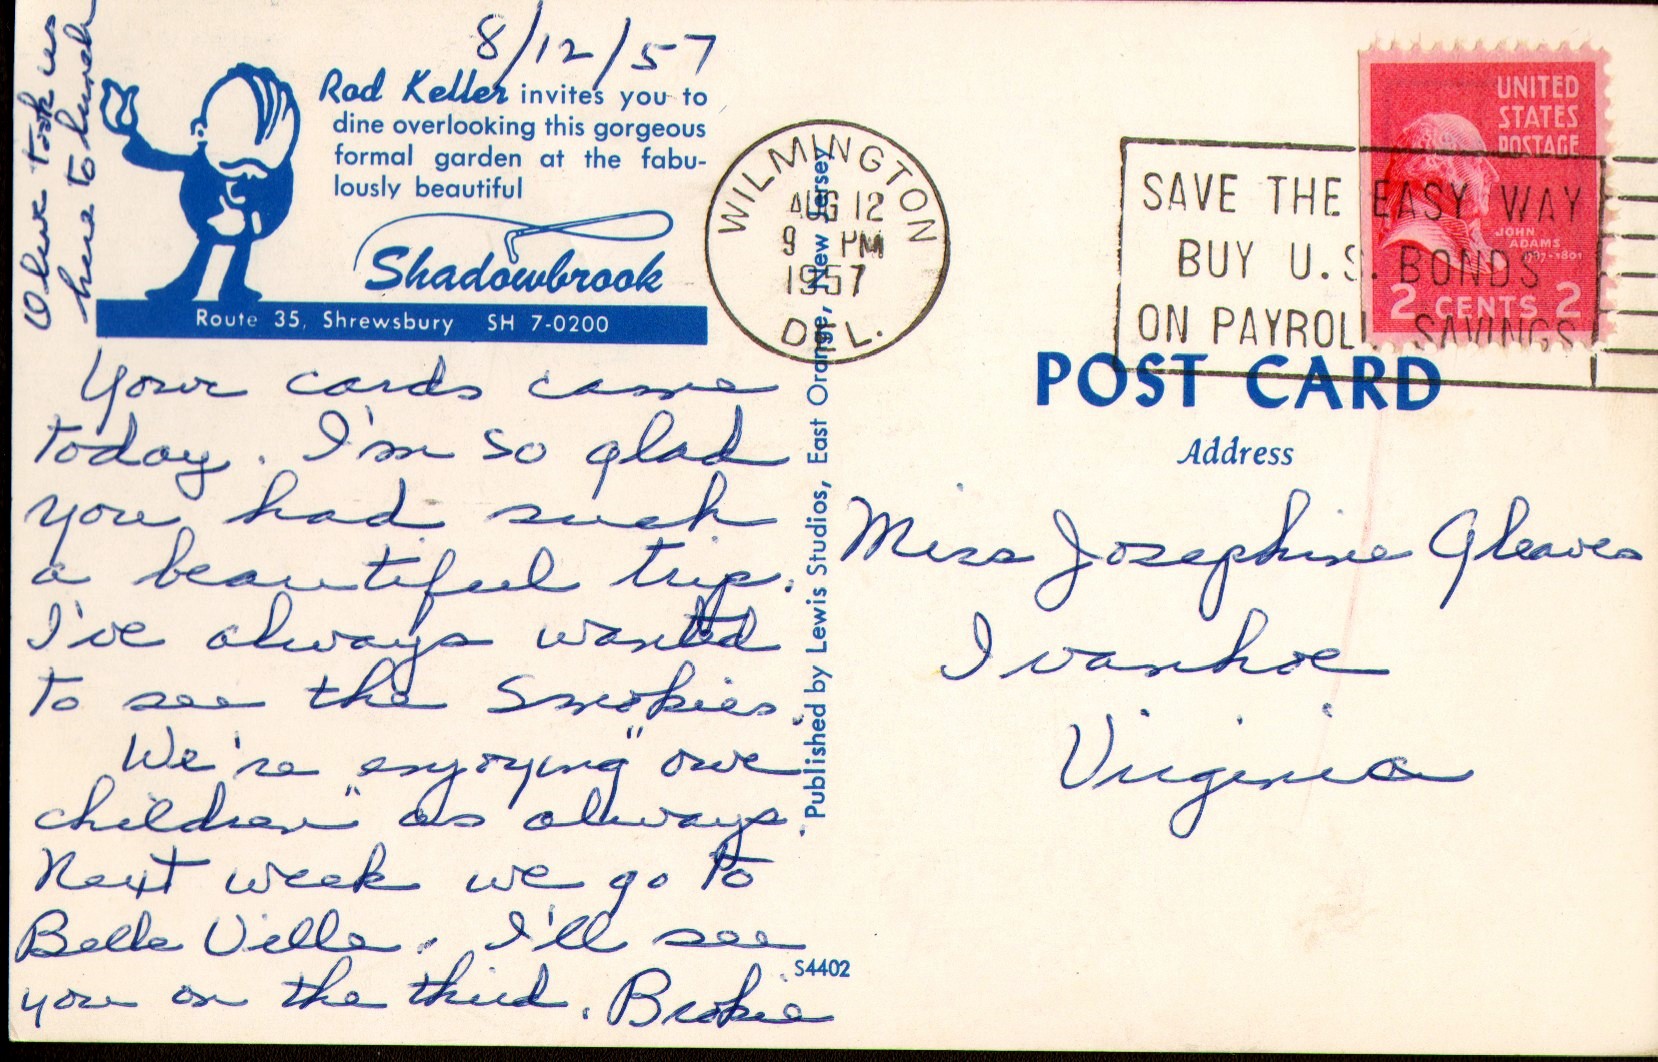 8/12/57
Oliver took us
here to lunch
Rod Keller invites you to
dine overlooking this gorgeous
formal garden at the fabu-
lously beautiful
Shadowbrook
Route 35, Shrewsbury SH 7-0200
Your cards came
today. I'm so glad
you had such
a beautiful trip.
I've always wanted
to see the Smokies.
We're enjoying "our
children" as always.
Next week we go to
Belle Ville. I'll see
you on the third. Brokie
Published by Lewis Studios, East Orange, New Jersey
S4402
WILMINGTON
AUG 12
9 PM
1957
DEL.
SAVE THE EASY WAY
BUY U.S. BONDS
ON PAYROLL SAVINGS
UNITED
STATES
POSTAGE
JOHN
ADAMS
1797-1801
2 CENTS 2
POST CARD
Address
Miss Josephine Gleaves
Ivanhoe
Virginia